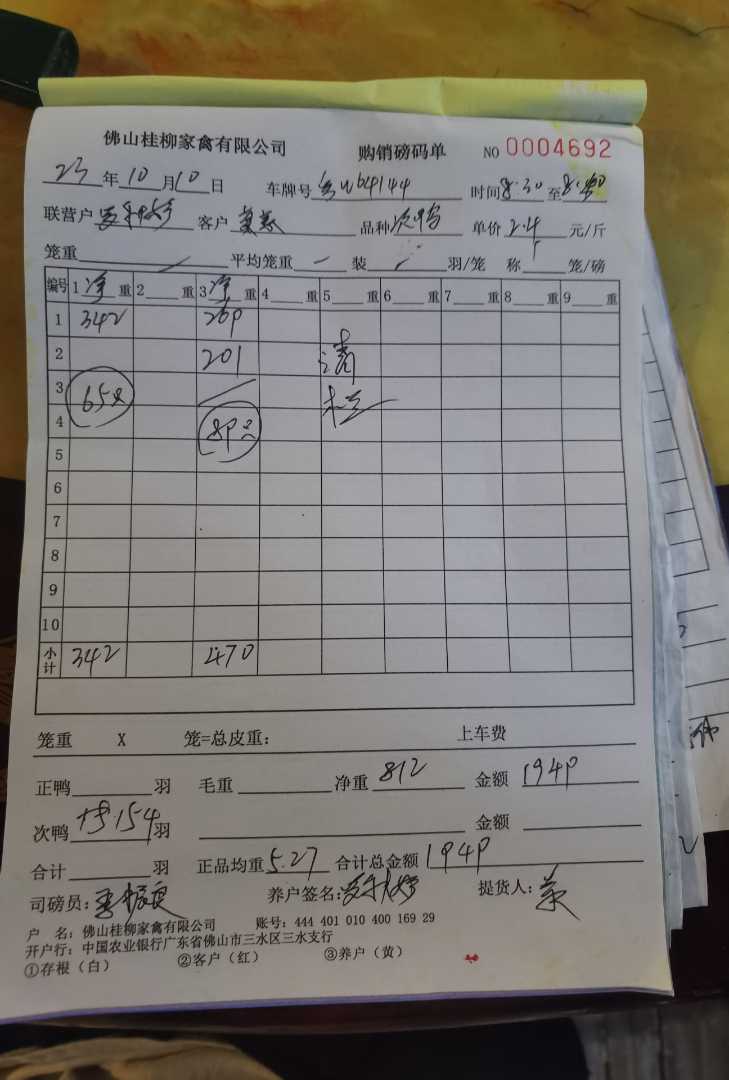 佛山桂柳家禽有限公司 购销磅码单 NO 0004692
23年10月10日 车牌号 64144 时间8:30至
联营户 客户 品种 单价2.4元/斤
笼重 平均笼重 一 装 羽/笼 称 笼/磅
编号 1净重 2 重 3净重 4 重 5 重 6 重 7 重 8 重 9 重
1 342 269
2 201 清
3 65只 栏
4 89只
5
6
7
8
9
10
小计 342 470
笼重 X 笼=总皮重: 上车费
正鸭 羽 毛重 净重 812 金额 1949
次鸭 154羽 金额
合计 羽 正品均重5.27 合计总金额1949
司磅员: 养户签名: 提货人:
户 名: 佛山桂柳家禽有限公司 账号: 444 401 010 400 169 29
开户行: 中国农业银行广东省佛山市三水区三水支行
①存根(白) ②客户(红) ③养户(黄)